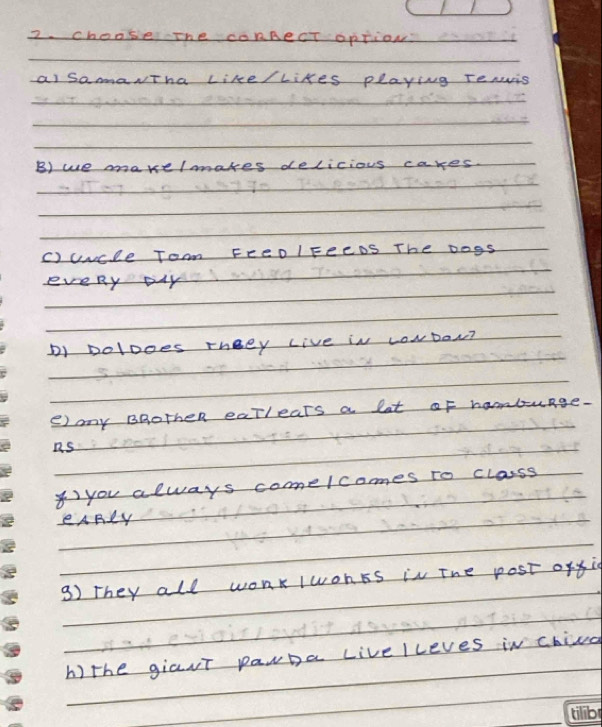 2. choose The coRRecT opTion
a) SamanTha Like/Likes playing Tennis
B) we make/makes delicious cakes.
C) uncle Tom FeeD/FeeDs The Dogs
eveRy Day
D) Do/Does They Live in LonDon?
e) my BRoTheR eaT/eaTs a lot oF hambuRge-
Rs
f) you always come/comes To class
eARly
g) They all woRk/woRks in The posT offi
h) The gianT panDa Live/Leves in China
tilibr